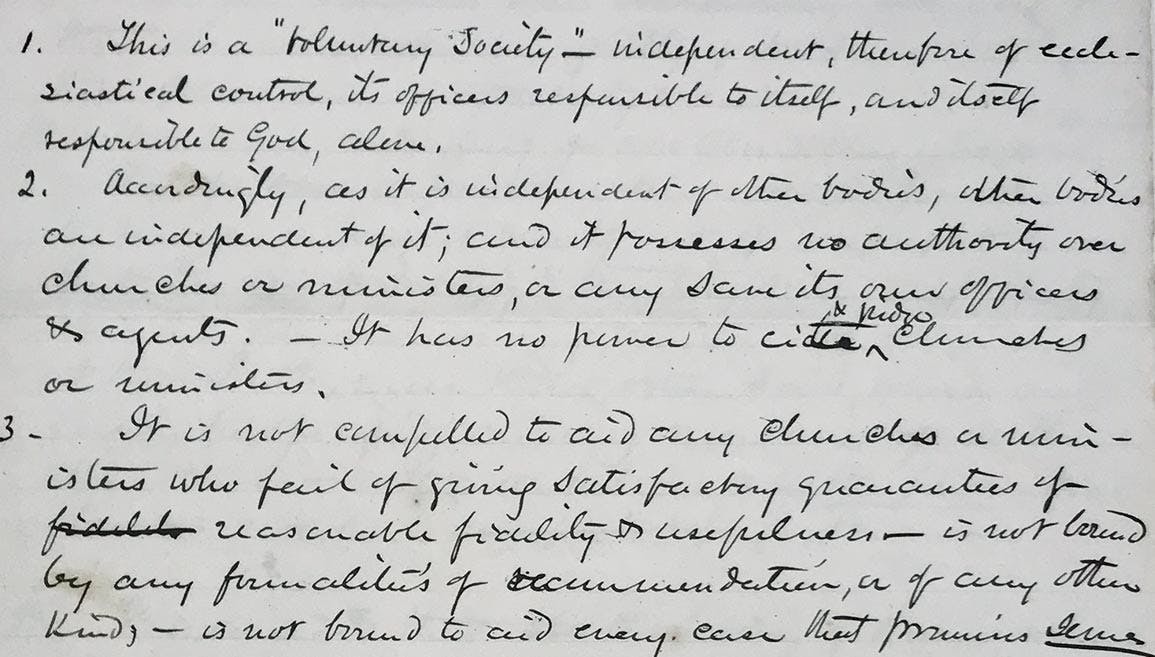 1. This is a "Voluntary Society" – independent, therefore of eccle-
siastical control, its officers responsible to itself, and itself
responsible to God, alone.
2. Accordingly, as it is independent of other bodies, other bodies
are independent of it; and it possesses no authority over
churches or ministers, or any save its own officers
& agents. – It has no power to cite & judge churches
or ministers.
3 - It is not compelled to aid any churches or min-
isters who fail of giving satisfactory guarantees of
fidelit reasonable fidelity & usefulness – is not bound
by any formalities of recommendation, or of any other
kind; – is not bound to aid every case that promises